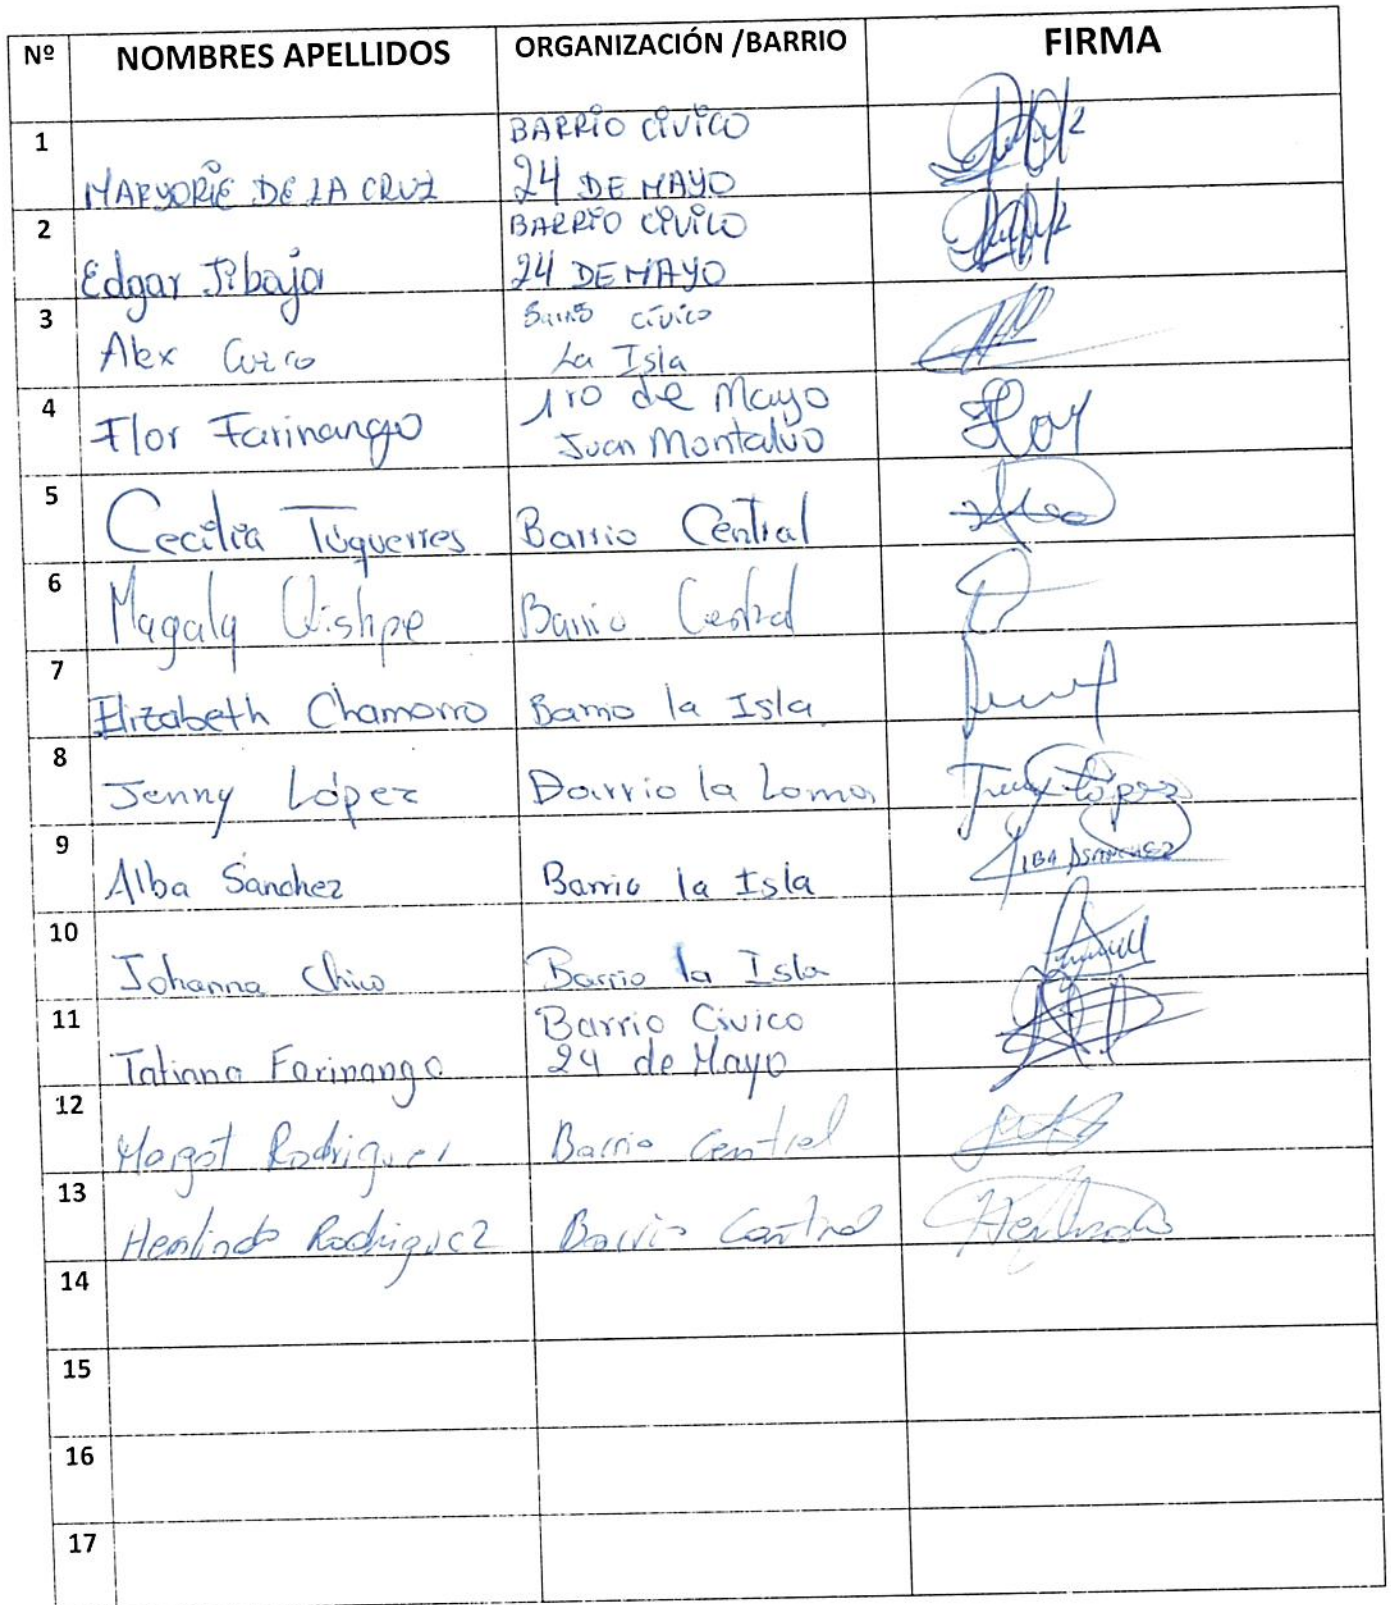 Nº NOMBRES APELLIDOS ORGANIZACIÓN /BARRIO FIRMA
1 MARYORIE DE LA CRUZ BARRIO CIVICO
24 DE MAYO
2 Edgar Jibaja BARRIO CIVICO
24 DE MAYO
3 Alex Barrio civico
La Isla
4 Flor Farinango 1ro de Mayo
Juan Montalvo
5 Cecilia Túquerres Barrio Central
6 Magaly Quishpe Barrio Central
7 Elizabeth Chamorro Barrio la Isla
8 Jenny López Barrio la Loma Jenny López
9 Alba Sanchez Barrio la Isla ALBA SANCHEZ
10 Johanna Chico Barrio la Isla
11 Tatiana Farinango Barrio Civico
24 de Mayo
12 Margot Rodriguez Barrio Central
13 Rodriguez Barrio Central
14
15
16
17